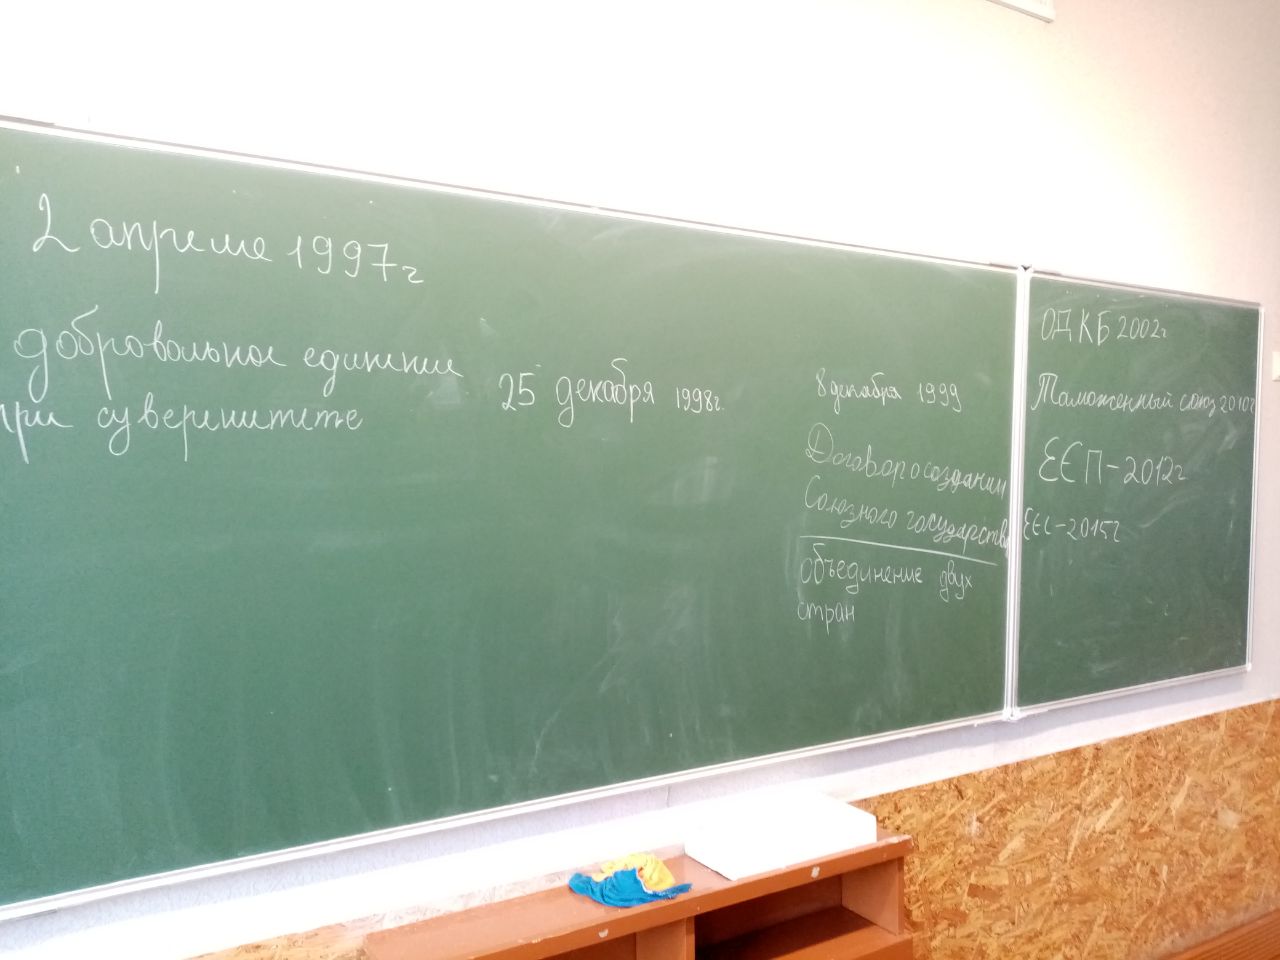 2 апреля 1997г
добровольное единение
при суверенитете
25 декабря 1998г.
8 декабря 1999
Договор о создании
Союзного государства
объединение двух
стран
ОДКБ 2002г
Таможенный союз 2010г
ЕЕП-2012г
ЕЕС-2015г